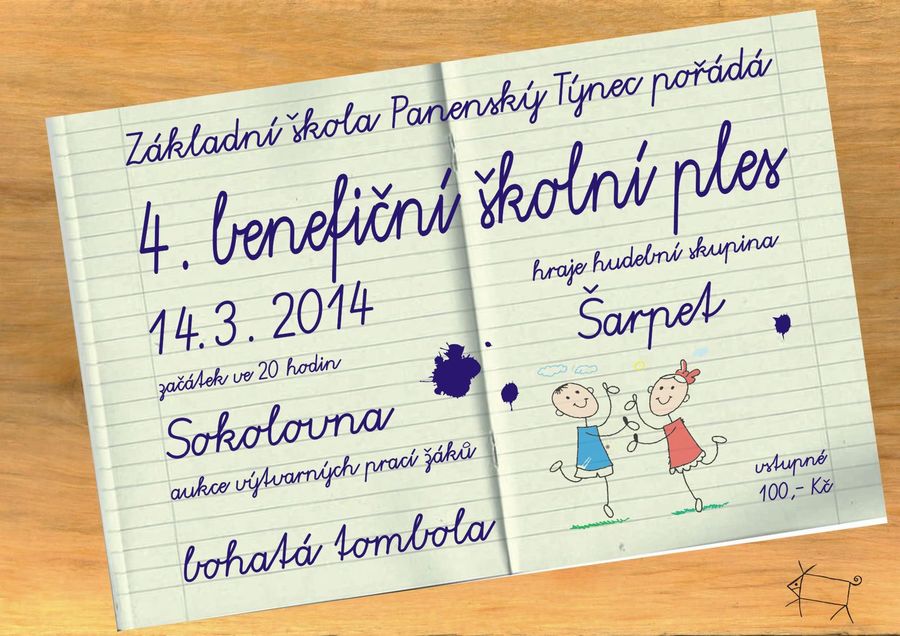 Základní škola Panenský Týnec pořádá
4. benefiční školní ples
14.3. 2014
začátek ve 20 hodin
Sokolovna
aukce výtvarných prací žáků
bohatá tombola
hraje hudební skupina
Šarpet
vstupné
100,- Kč